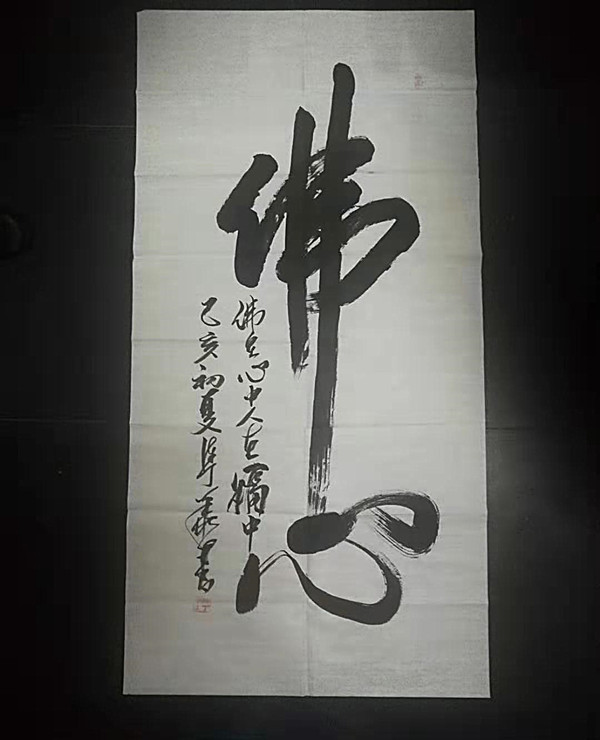 佛心
佛在心中人在福中
己亥初夏華書